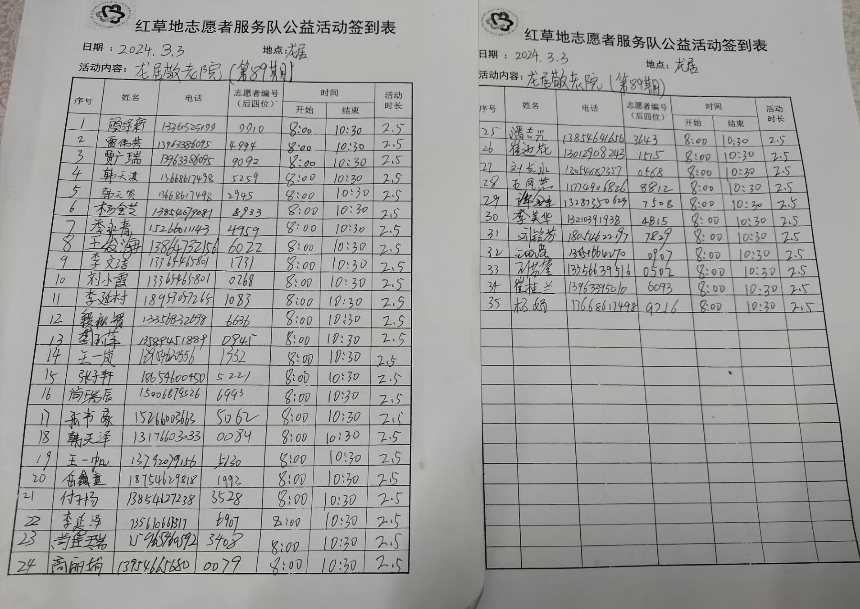 红草地志愿者服务队公益活动签到表
日期：2024.3.3 地点:龙居
活动内容：龙居敬老院（第89期）
序号 姓名 电话 志愿者编号（后四位） 时间 开始 结束 活动时长
1 8:00 10:30 2.5
2 13963386095 4994 8:00 10:30 2.5
3 贾广瑞 13963386095 9092 8:00 10:30 2.5
4 韩天凌 13668617498 5259 8:00 10:30 2.5
5 13668617498 2945 8:00 10:30 2.5
6 杨金芝 8:00 10:30 2.5
7 李永青 15266011143 4959 8:00 10:30 2.5
8 13864732156 6022 8:00 10:30 2.5
9 李文洁 13365465801 1731 8:00 10:30 2.5
10 刘小霞 13365465801 0768 8:00 10:30 2.5
11 李延村 18957057265 1083 8:00 10:30 2.5
12 6636 8:00 10:30 2.5
13 13589451889 0945 8:00 10:30 2.5
14 王一岚 1952 8:00 10:30 2.5
15 张子轩 18654600450 5221 8:00 10:30 2.5
16 15006879526 6993 8:00 10:30 2.5
17 15266003663 5062 8:00 10:30 2.5
18 韩天泽 13176603033 0084 8:00 10:30 2.5
19 王一帆 13792079156 5130 8:00 10:30 2.5
20 18754629818 1992 8:00 10:30 2.5
21 付子杨 13854627238 3528 8:00 10:30 2.5
22 李延泽 13561066317 6907 8:00 10:30 2.5
23 3408 8:00 10:30 2.5
24 高丽娟 13954665680 0079 8:00 10:30 2.5
红草地志愿者服务队公益活动签到表
日期：2024.3.3 地点:龙居
活动内容：龙居敬老院（第89期）
序号 姓名 电话 志愿者编号（后四位） 时间 开始 结束 活动时长
25 13854641656 3643 8:00 10:30 2.5
26 13012908243 1515 8:00 10:30 2.5
27 0568 8:00 10:30 2.5
28 8812 8:00 10:30 2.5
29 7508 8:00 10:30 2.5
30 李美华 13210391938 4815 8:00 10:30 2.5
31 18054622297 7829 8:00 10:30 2.5
32 0907 8:00 10:30 2.5
33 13356639516 0502 8:00 10:30 2.5
34 崔桂兰 13963395210 6093 8:00 10:30 2.5
35 杨娟 13668617498 9216 8:00 10:30 2.5